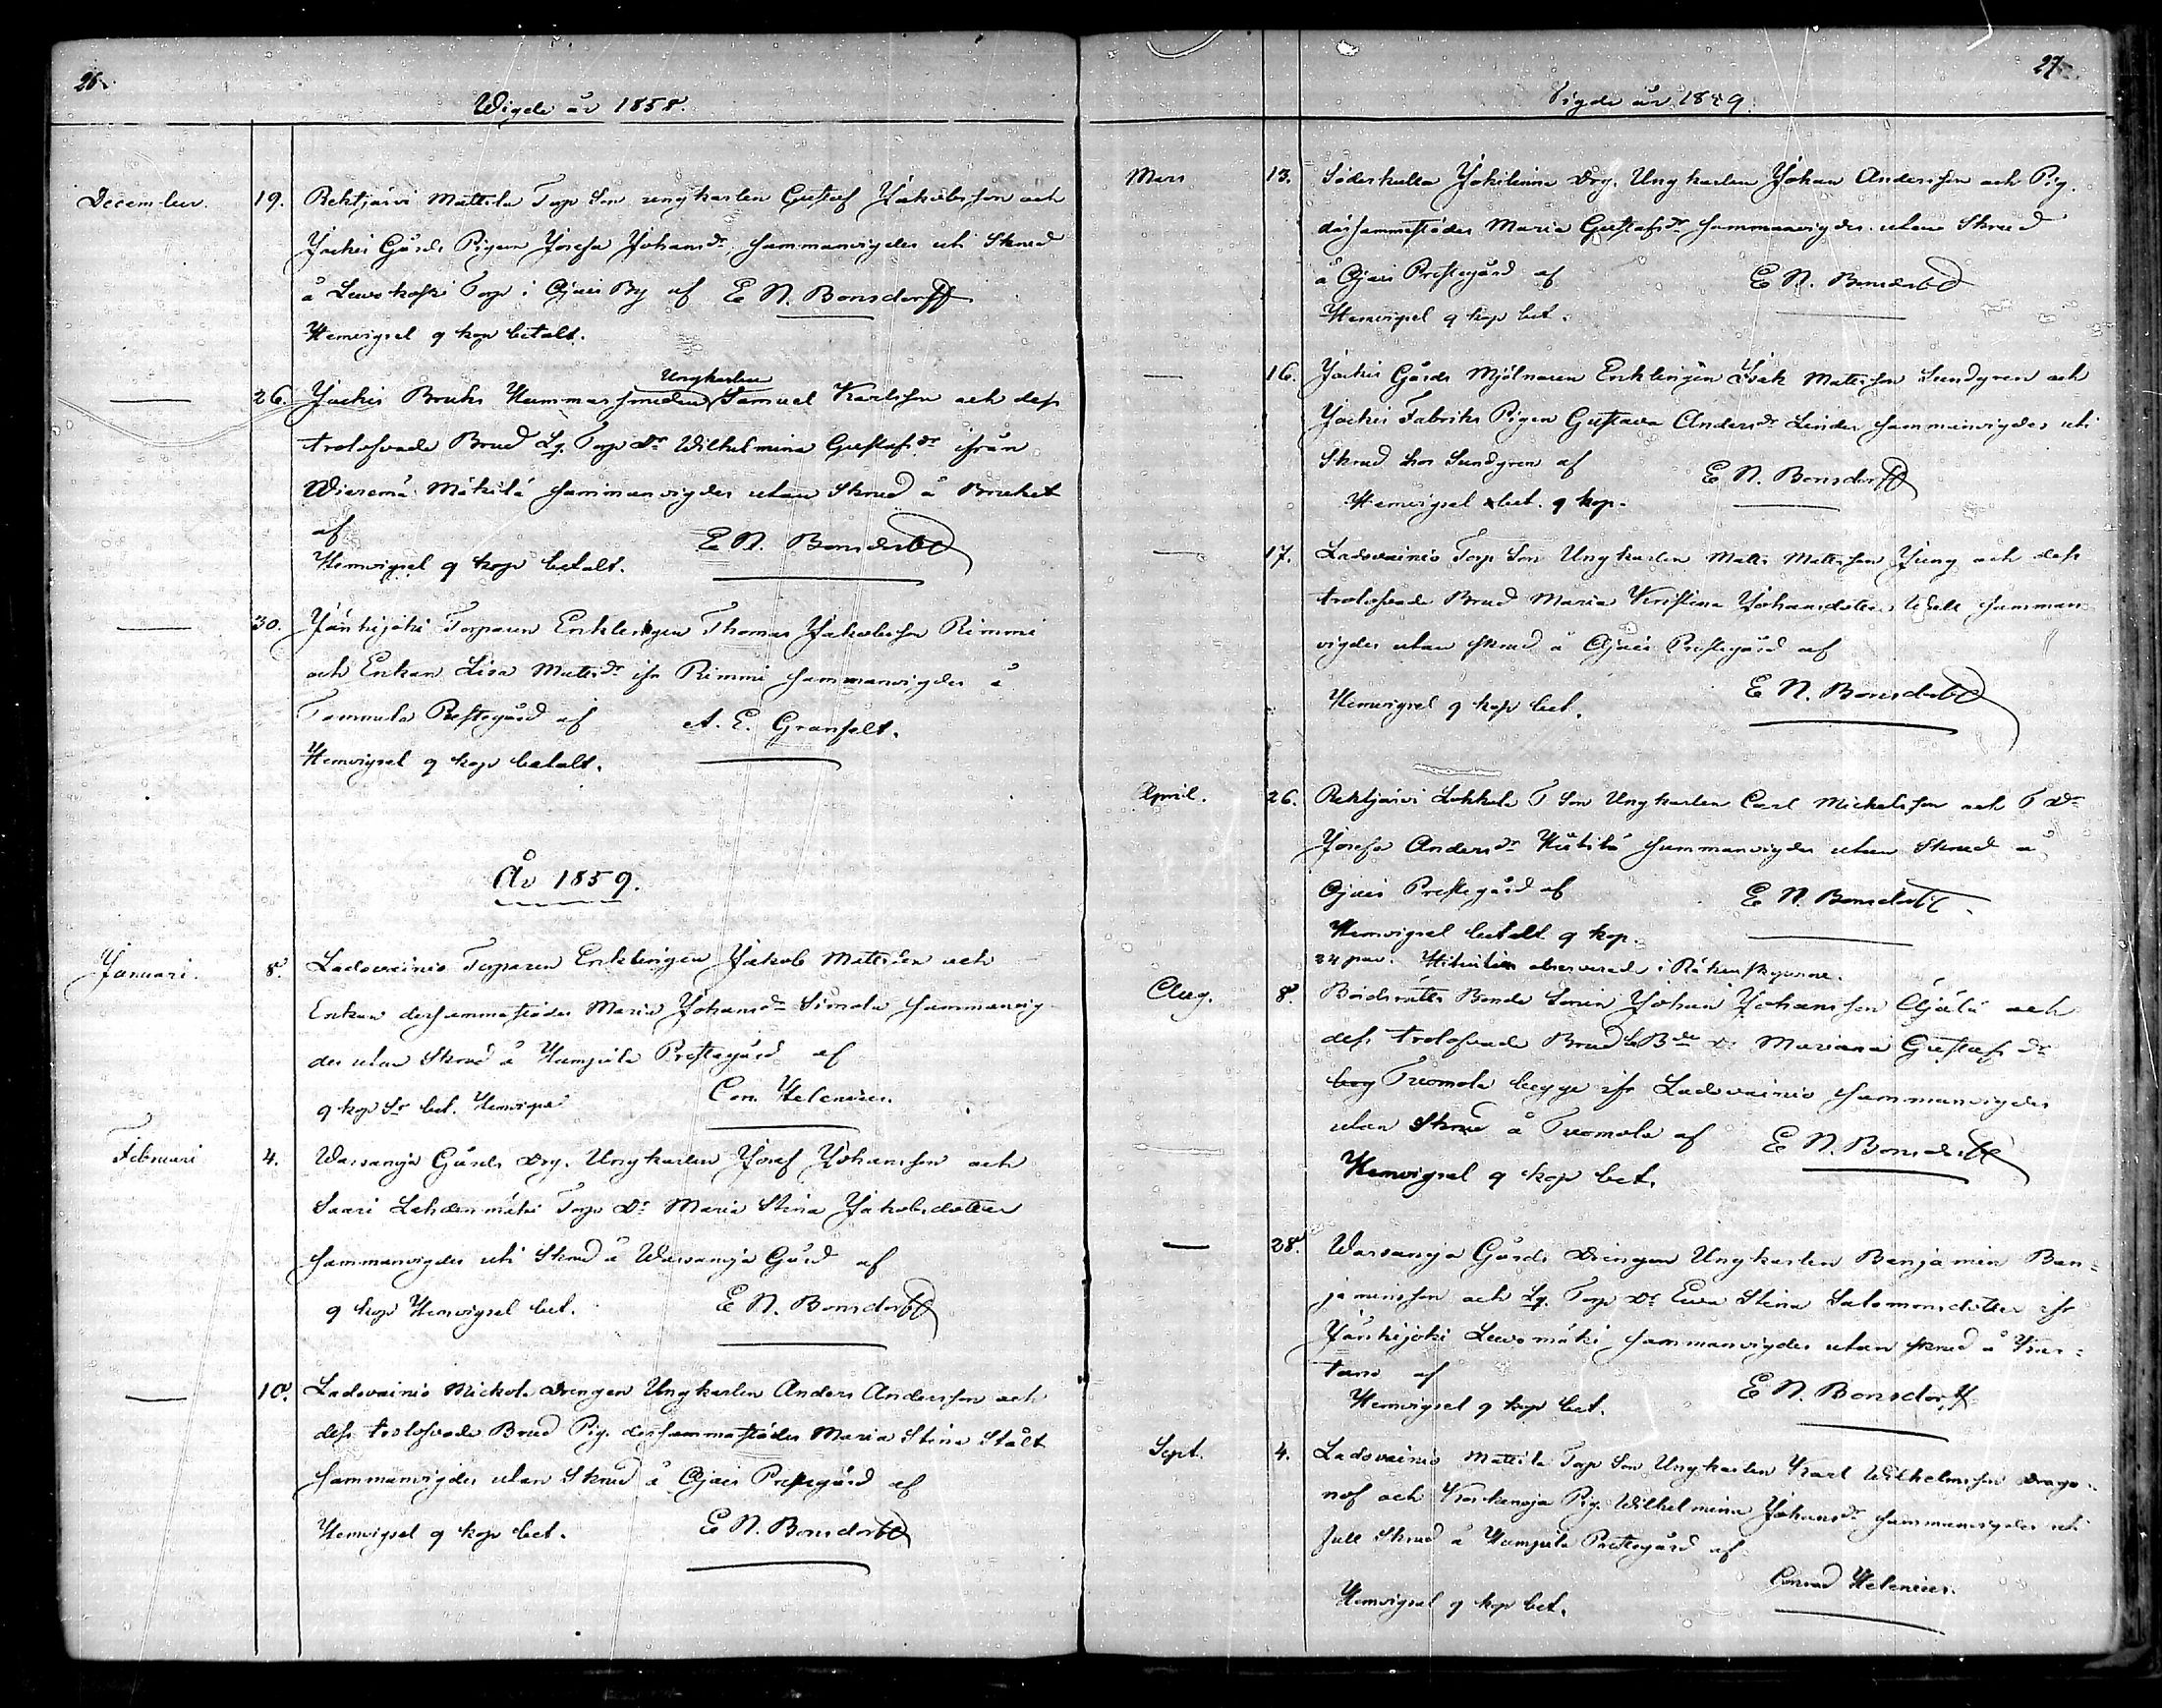 26.
Wigde år 1858.
December. 19. Rehtijärvi Mattila Torp Son ungkarlen Gustaf Jakobsson och
Jockis Gårds Pigan Josefa Johansdr, sammanvigdes uti Skrud
å Lewokoski Torp i Ojais By af E N. Bonsdorff
Hemvigsel 9 kop betalt.
— 26. Jockis Bruks Hammarsmeden Ungkarlen Samuel Karlsson och dess
trolofvade Brud Lg. Torp Dr Wilhelmina Gustafsdr ifrån
Wieremä Mäkilä sammanvigdes utan Skrud å Bruket
af E N. Bonsdorff
Hemvigsel 9 kop betalt.
— 30. Jänhijoki Torparen Enklingen Thomas Jakobsson Rimmi
och Enkan Lisa Mattsdr ifr Rimmi sammanvigdes å
Tammela Prestegård af A. E. Granfelt.
Hemvigsel 9 kop betalt.
År 1859.
Januari. 8. Ladovainio Torparen Enklingen Jakob Mattsson och
Enkan dersammastädes Maria Johansdr Simola sammanvig
des utan Skrud å Humpila Prestegård af
9 kop Sr bet. Hemvigsel Con. Helenius.
Februari 4. Warsanoja Gårds Drg. Ungkarlen Josef Johansson och
Saari Lehdenmäki Torp Dr Maria Stina Jakobsdotter
sammanvigdes uti Skrud å Warsanoja Gård af
9 kop Hemvigsel bet. E N. Bonsdorff
— 10. Ladovainio Mickola Drengen Ungkarlen Anders Andersson och
dess trolofvade Brud Pig. dersammastädes Maria Stina Stålt
sammanvigdes utan Skrud å Ojais Prestegård af
Hemvigsel 9 kop bet. E N. Bonsdorff
27.
Vigde år 1859.
Mars 13. Söderkulla Jokilinna Drg. Ungkarlen Johan Andersson och Pig.
dersammastädes Maria Gustafsdr sammanvigdes utan Skrud
å Ojais Prestegård af E N. Bonsdorff
Hemvigsel 9 kop bet.
— 16. Jockis Gårds Mjölnaren Enklingen Isak Matsson Sundgren och
Jockis Fabriks Pigan Gustava Andersdr Linder sammanvigdes uti
Skrud hos Sundgren af E N. Bonsdorff
Hemvigsel bet. 9 kop.
— 17. Ladovainio Torp Son Ungkarlen Matts Mattsson Jung och dess
trolofvade Brud Maria Kristina Johansdotter Wall samman
vigdes utan skrud å Ojais Prestegård af
Hemvigsel 9 kop bet. E N. Bonsdorff
April. 26. Rehtijärvi Lokkola T Son Ungkarlen Carl Michelsson och T Dr
Josefa Andersdr sammanvigdes utan Skrud å
Ojais Prestegård af E N. Bonsdorff
Hemvigsel betalt 9 kop.
observerade i Räkenskaperne.
Aug. 8. Bonde Sonen Johan Johansson Äjälä och
dess trolofvade Brud Bde Dr Mariana Gustafsdr
Tuomola begge ifr Ladovainio sammanvigdes
utan Skrud å Tuomola af E N. Bonsdorff
Hemvigsel 9 kop bet.
— 28. Warsanoja Gårds Drengen Ungkarlen Benjamin Ben=
jaminsson och Lg. Torp Dr Ewa Stina Salomonsdotter ifr
Jänhijoki Lewomäki sammanvigdes utan skrud å Kar=
tano af E N. Bonsdorff
Hemvigsel 9 kop bet.
Sept. 4. Ladovainio Mattila Torp Son Ungkarlen Karl Wilhelmsson Drago=
nof och Koskenoja Pig. Wilhelmina Johansdr sammanvigdes uti
full Skrud å Humpila Prestegård af
Conrad Helenius.
Hemvigsel 9 kop bet.